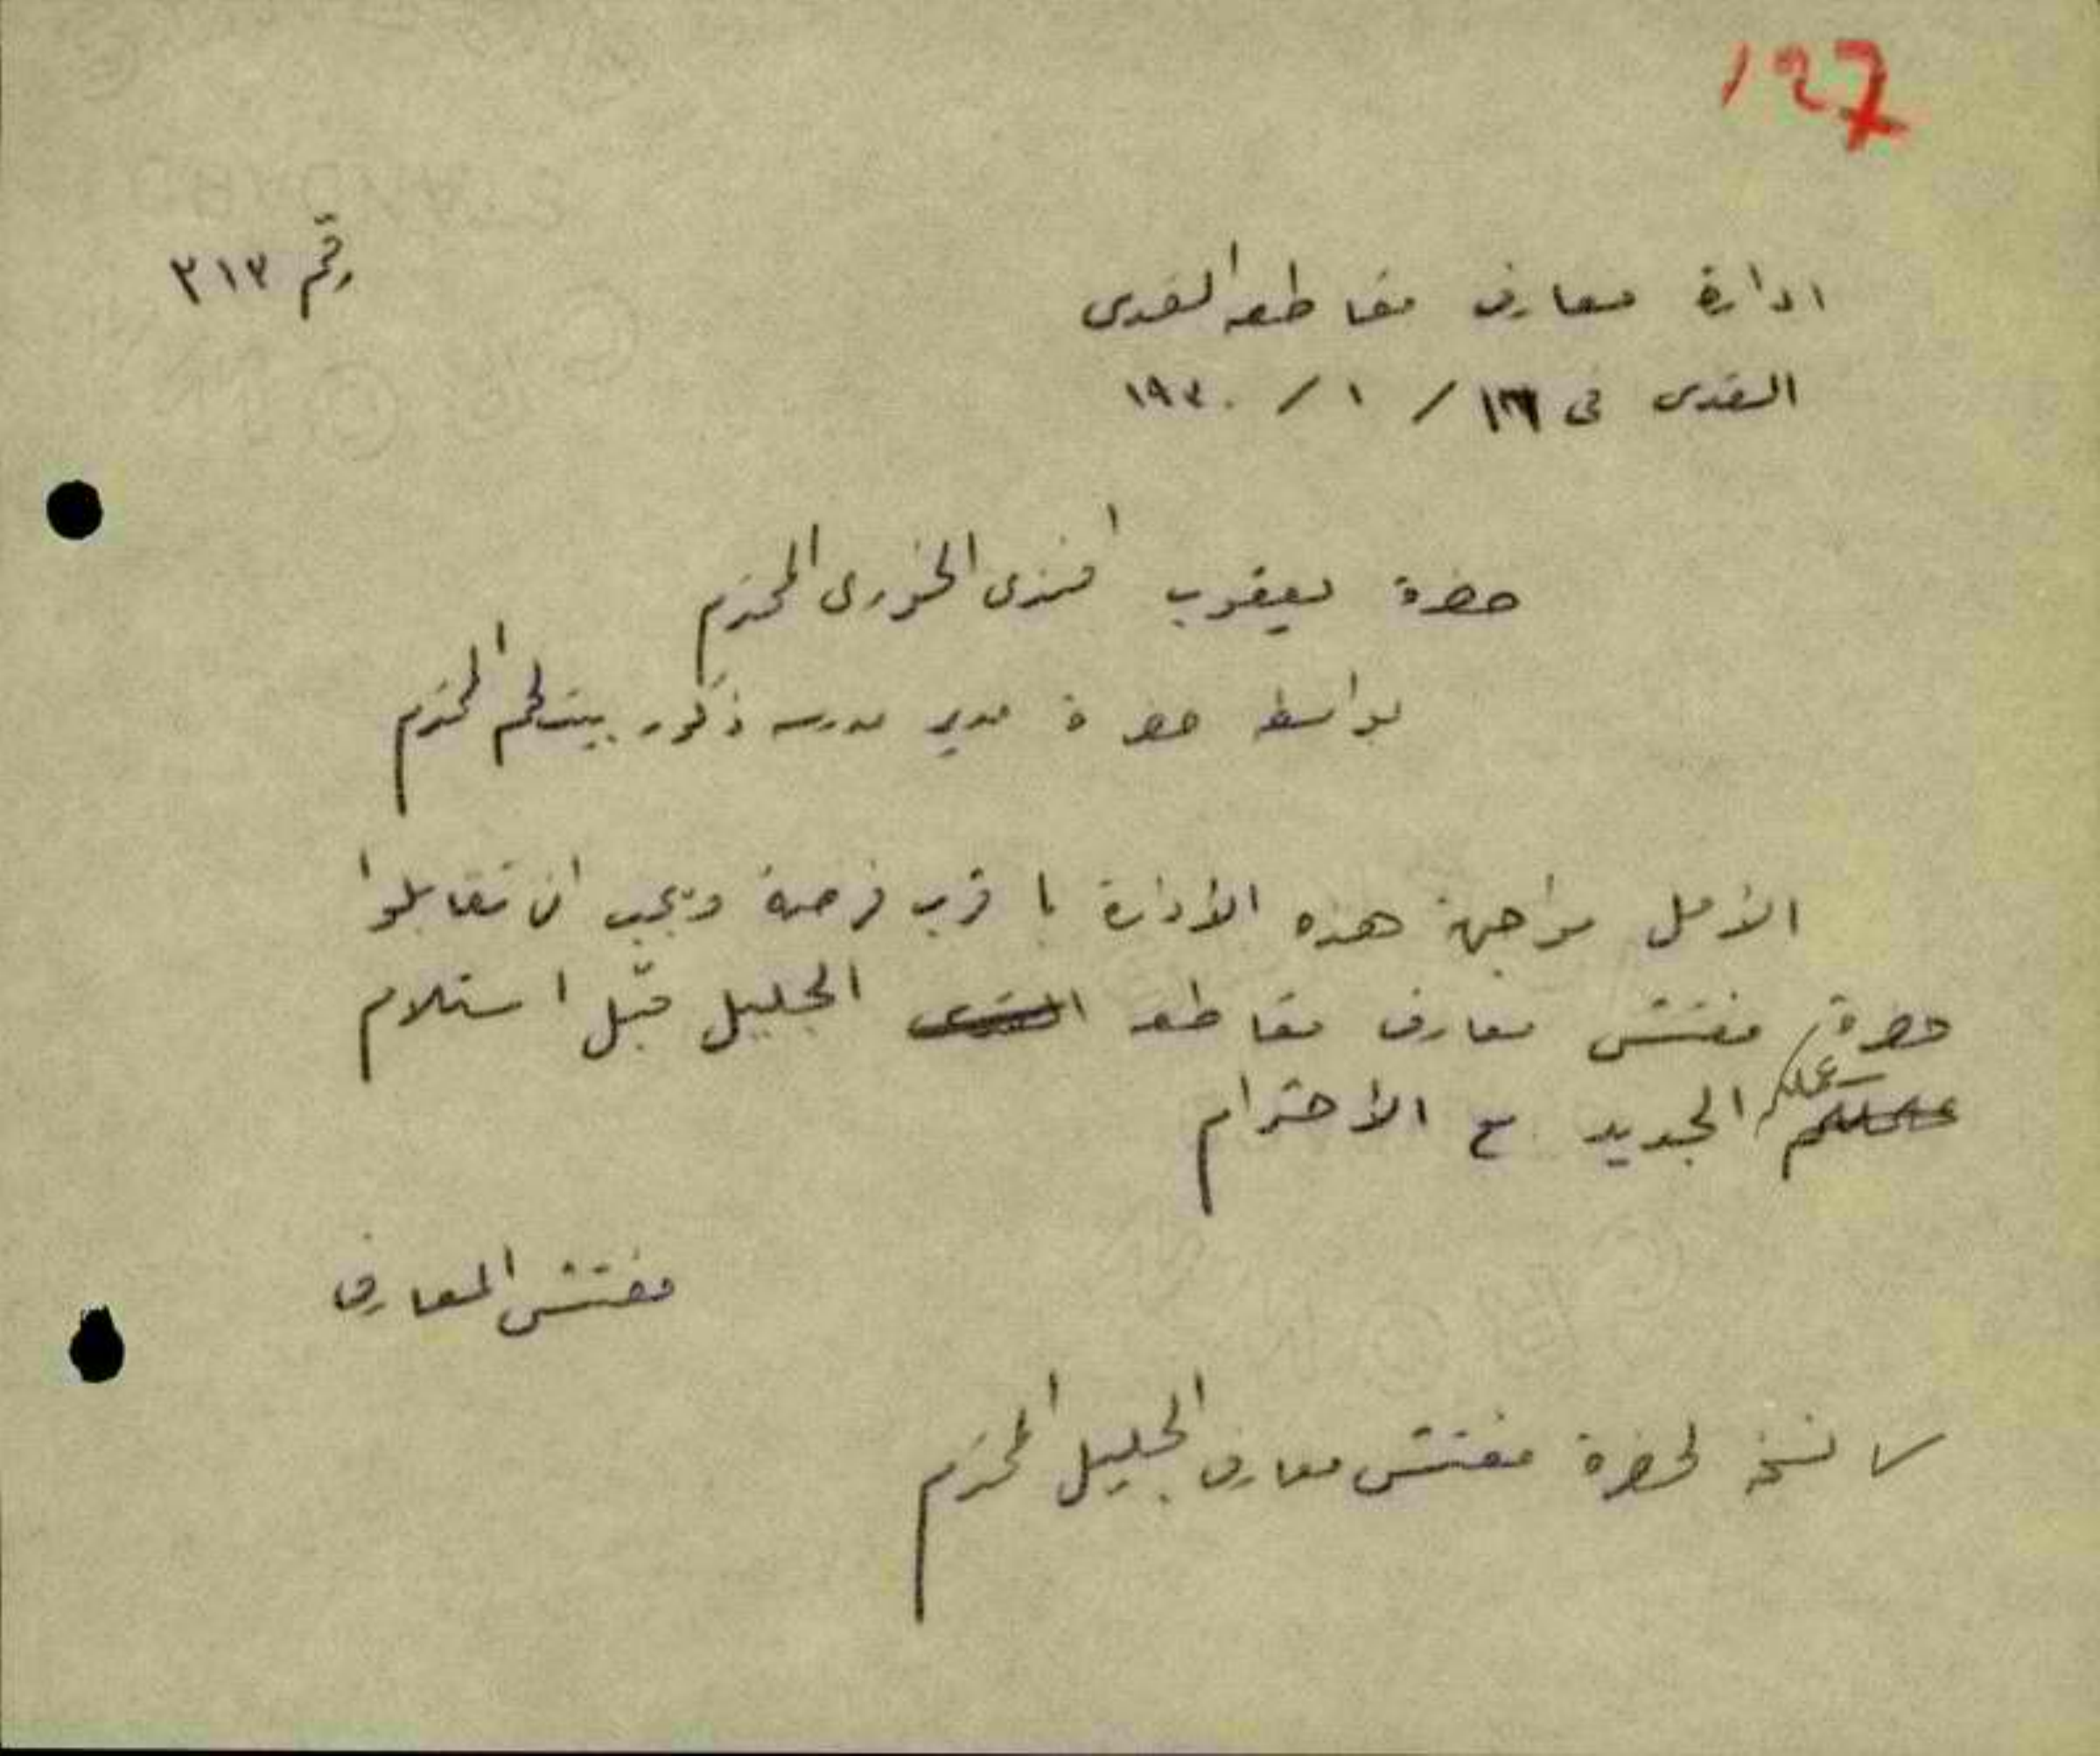 127
ادارة معارف مقاطعة القدس
رقم ٣١٣
القدس في / ١ / ١٩٣٠
حضرة يعقوب افندي الخوري المحترم
بواسطة حضرة مدير مدرسة ذكور بيت لحم المحترم
الأمل مواجهة هذه الأدارة باقرب فرصة ويجب ان تقابلوا
حضرة مفتش معارف مقاطعة الجليل قبل استلام
عملكم الجديد مع الاحترام
مفتش المعارف
نسخة لحضرة مفتش معارف الجليل المحترم